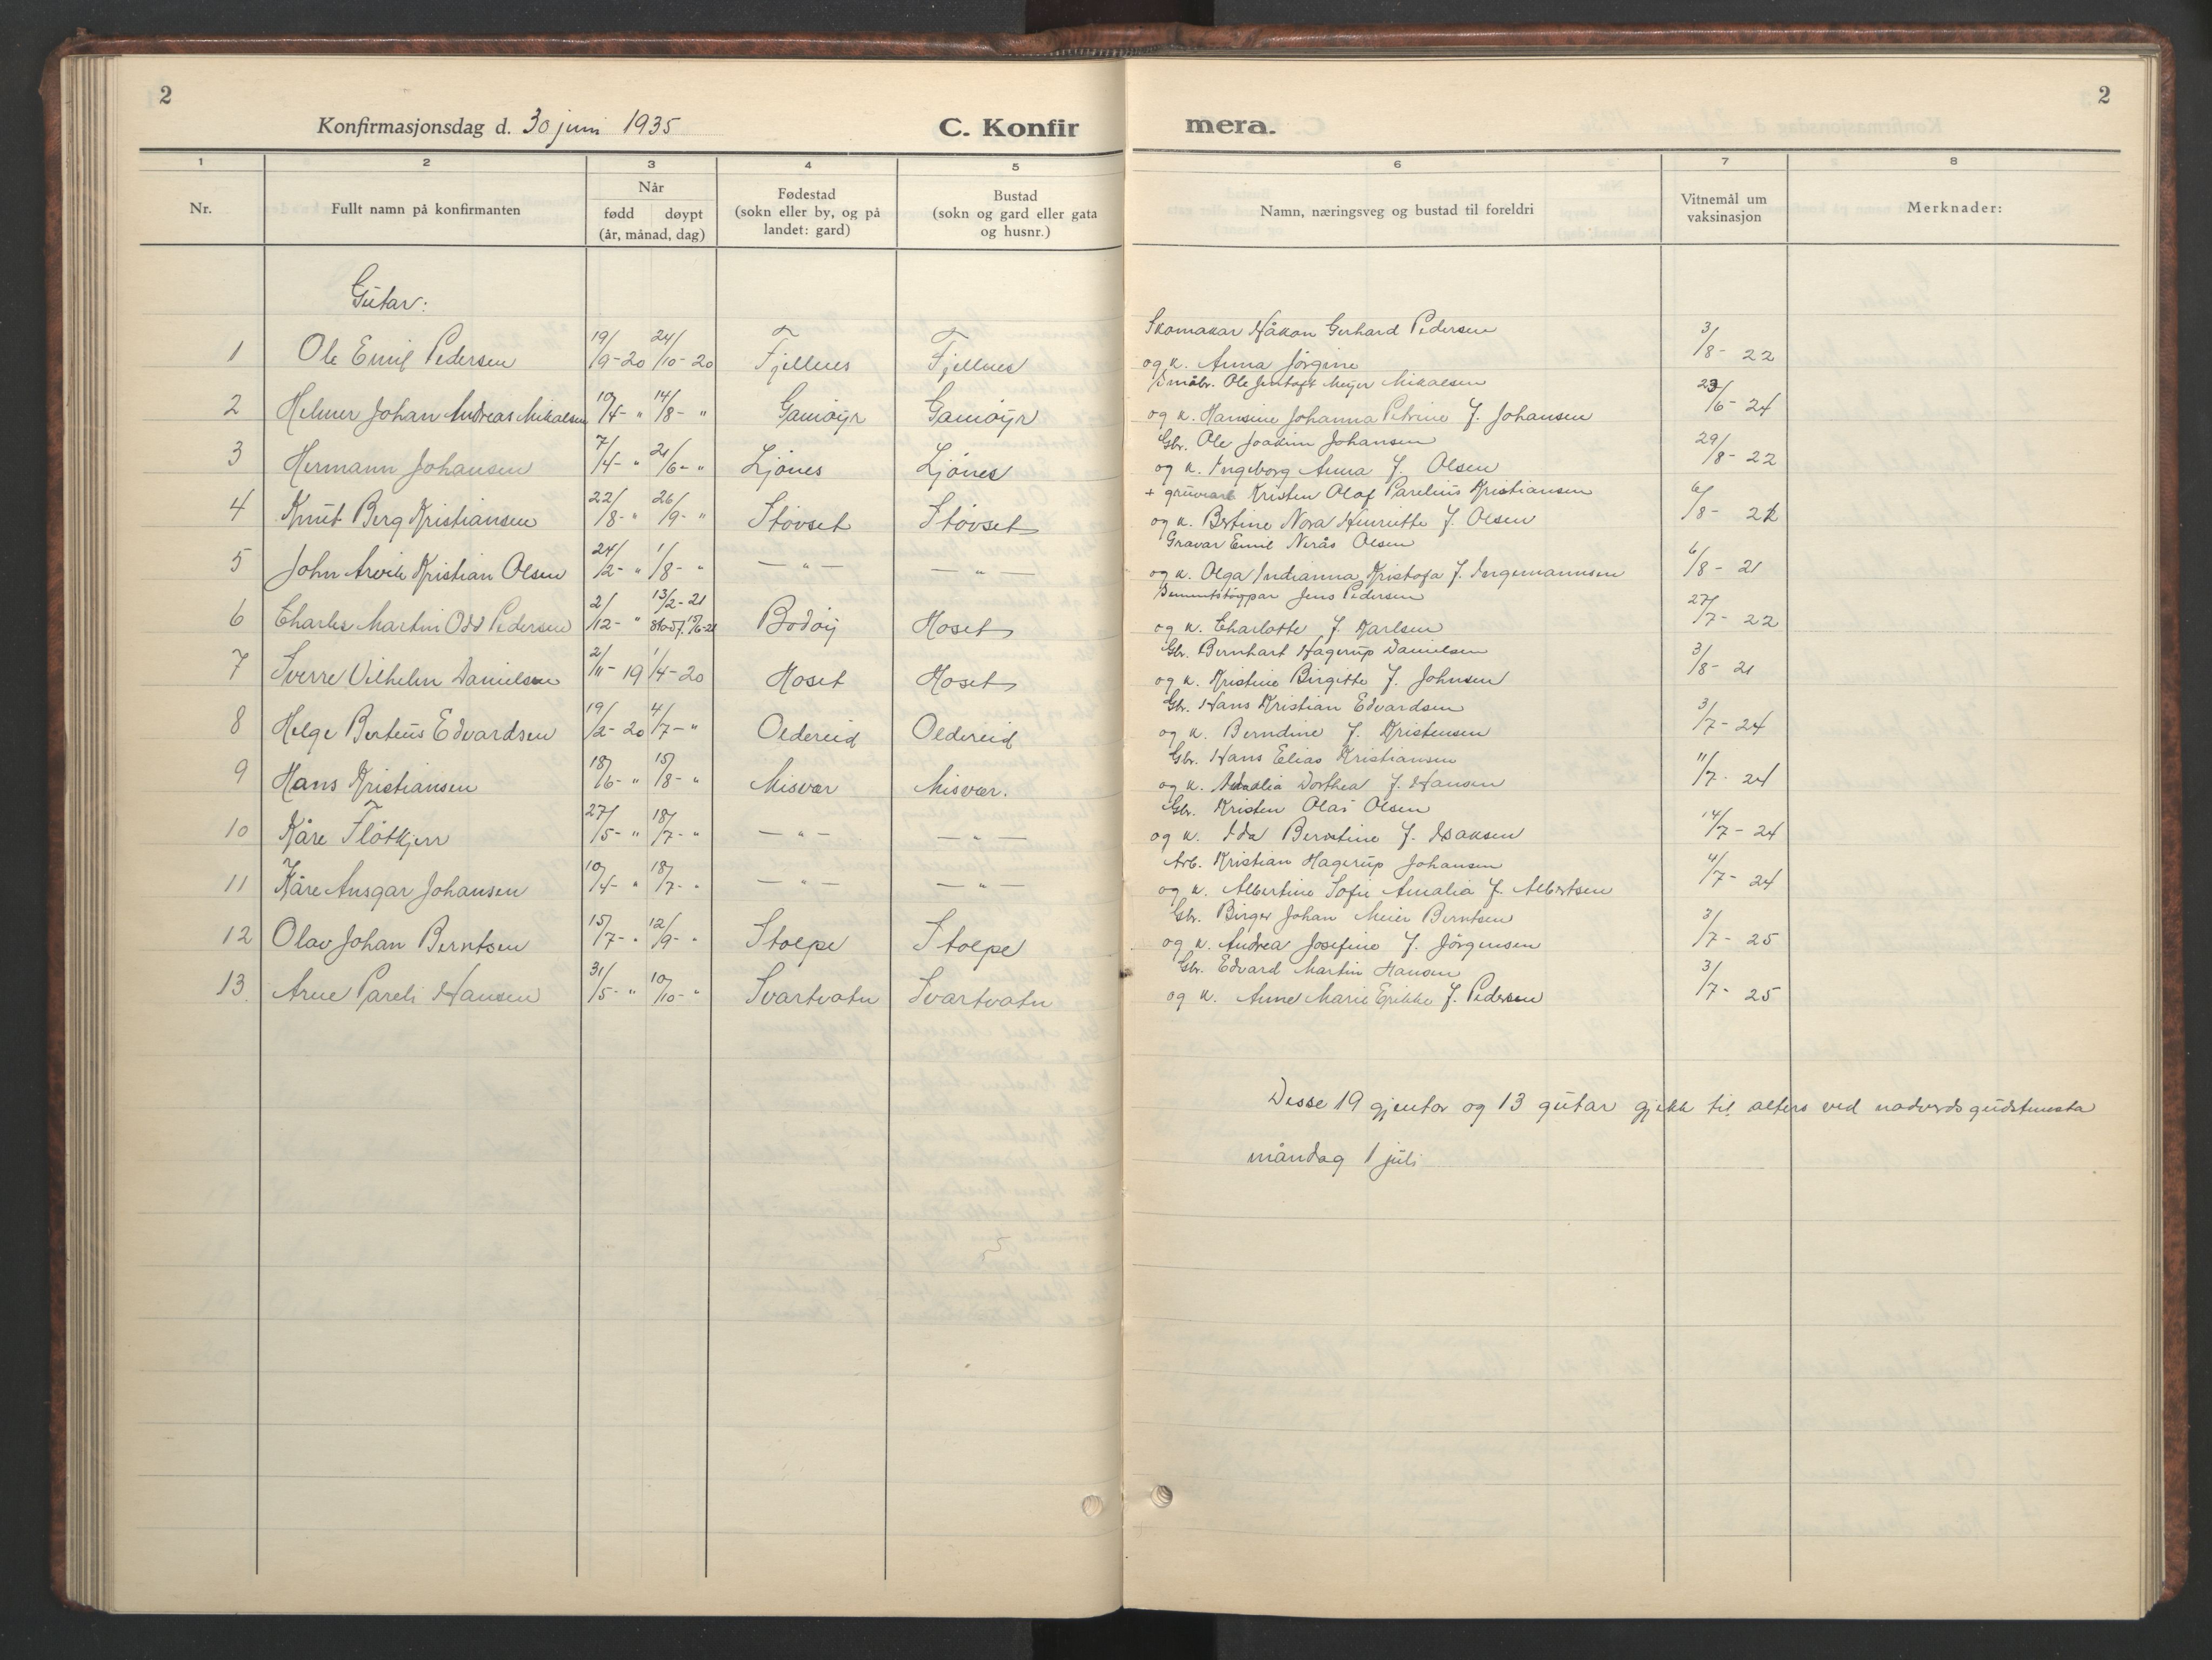 2
Konfirmasjonsdag d. 30 juni 1935
C. Konfir
mera.
2
1 2 3 4 5 6 7 8
Nr.
Fullt namn på konfirmanten
Når
fødd døypt
(år, månad, dag)
Fødestad
(sokn eller by, og på
landet: gard)
Bustad
(sokn og gard eller gata
og husnr.)
Namn, næringsveg og bustad til foreldri
Vitnemål um
vaksinasjon
Merknader:
Gutar:
1 Ole Emil Pedersen 19/9-20 24/10-20 Fjellnes Fjellnes Skomakar Håkon Gerhard Pedersen 3/8-22
og k. Anna Jørgine
2 Helmer Johan Andreas Mikalsen 10/4-" 14/8-" Gamøyr Gamøyr Småbr. Ole Jentoft Meyer Mikalsen 23/6-24
og k. Hansine Johanna Petrine f. Johansen
3 Hermann Johansen 7/4-" 21/6-" Ljønes Ljønes Gbr. Ole Joakim Johansen 29/8-22
og k. Ingeborg Anna f. Olsen
4 Knut Berg Kristiansen 22/8-" 26/9-" Støvset Støvset + gruvearb Kristen Olaf Parelius Kristiansen 6/8-
og k. Bertine Nora Henriette f. Olsen
5 John Arvik Kristian Olsen 24/2-" 1/8-" —"— —"— Gravar Emil Nerås Olsen 6/8-21
og k. Olga Indianna Kristofa f. Ingemannsen
6 Charles Martin Odd Pedersen 2/12-" 13/2-21 Bodøy Hoset Sementstøypar Jens Pedersen 27/7-22
og k. Charlotte f. Karlsen
7 Sverre Vilhelm Danielsen 2/11-19 1/4-20 Hoset Hoset Gbr. Bernhart Hagerup Danielsen 3/8-21
og k. Kristine Birgitte f. Johnsen
8 Helge Berteus Edvardsen 19/2-20 4/7-" Oldereid Oldereid Gbr. Hans Kristian Edvardsen 3/7-24
og k. Berndine f. Kristensen
9 Hans Kristiansen 18/6-" 15/8-" Misvær Misvær. Gbr. Hans Elias Kristiansen 11/7-24
og k. Amalia Dorthea f. Hansen
10 Kåre Fløtkjerr 27/5-" 18/7-" —"— —"— Gbr. Kristen Olai Olsen 14/7-24
og k. Ida Berntine f. Isaksen
11 Kåre Ansgar Johansen 10/4-" 18/7-" —"— —"— Arb. Kristian Hagerup Johansen 4/7-24
og k. Albertine Sofie Amalia f. Albertsen
12 Olav Johan Berntsen 15/7-" 12/9-" Stolpe Stolpe Gbr. Birger Johan Meier Berntsen 3/7-25
og k. Andrea Josefine f. Jørgensen
13. Arne Pareli Hansen 31/5-" 10/10-" Svartvatn Svartvatn Gbr. Edvard Martin Hansen 3/7-25
og k. Anne Marie Erikke f. Pedersen
Desse 19 gjentor og 13 gutar gjekk til alters ved nadverdsgudstenesta
måndag 1 juli